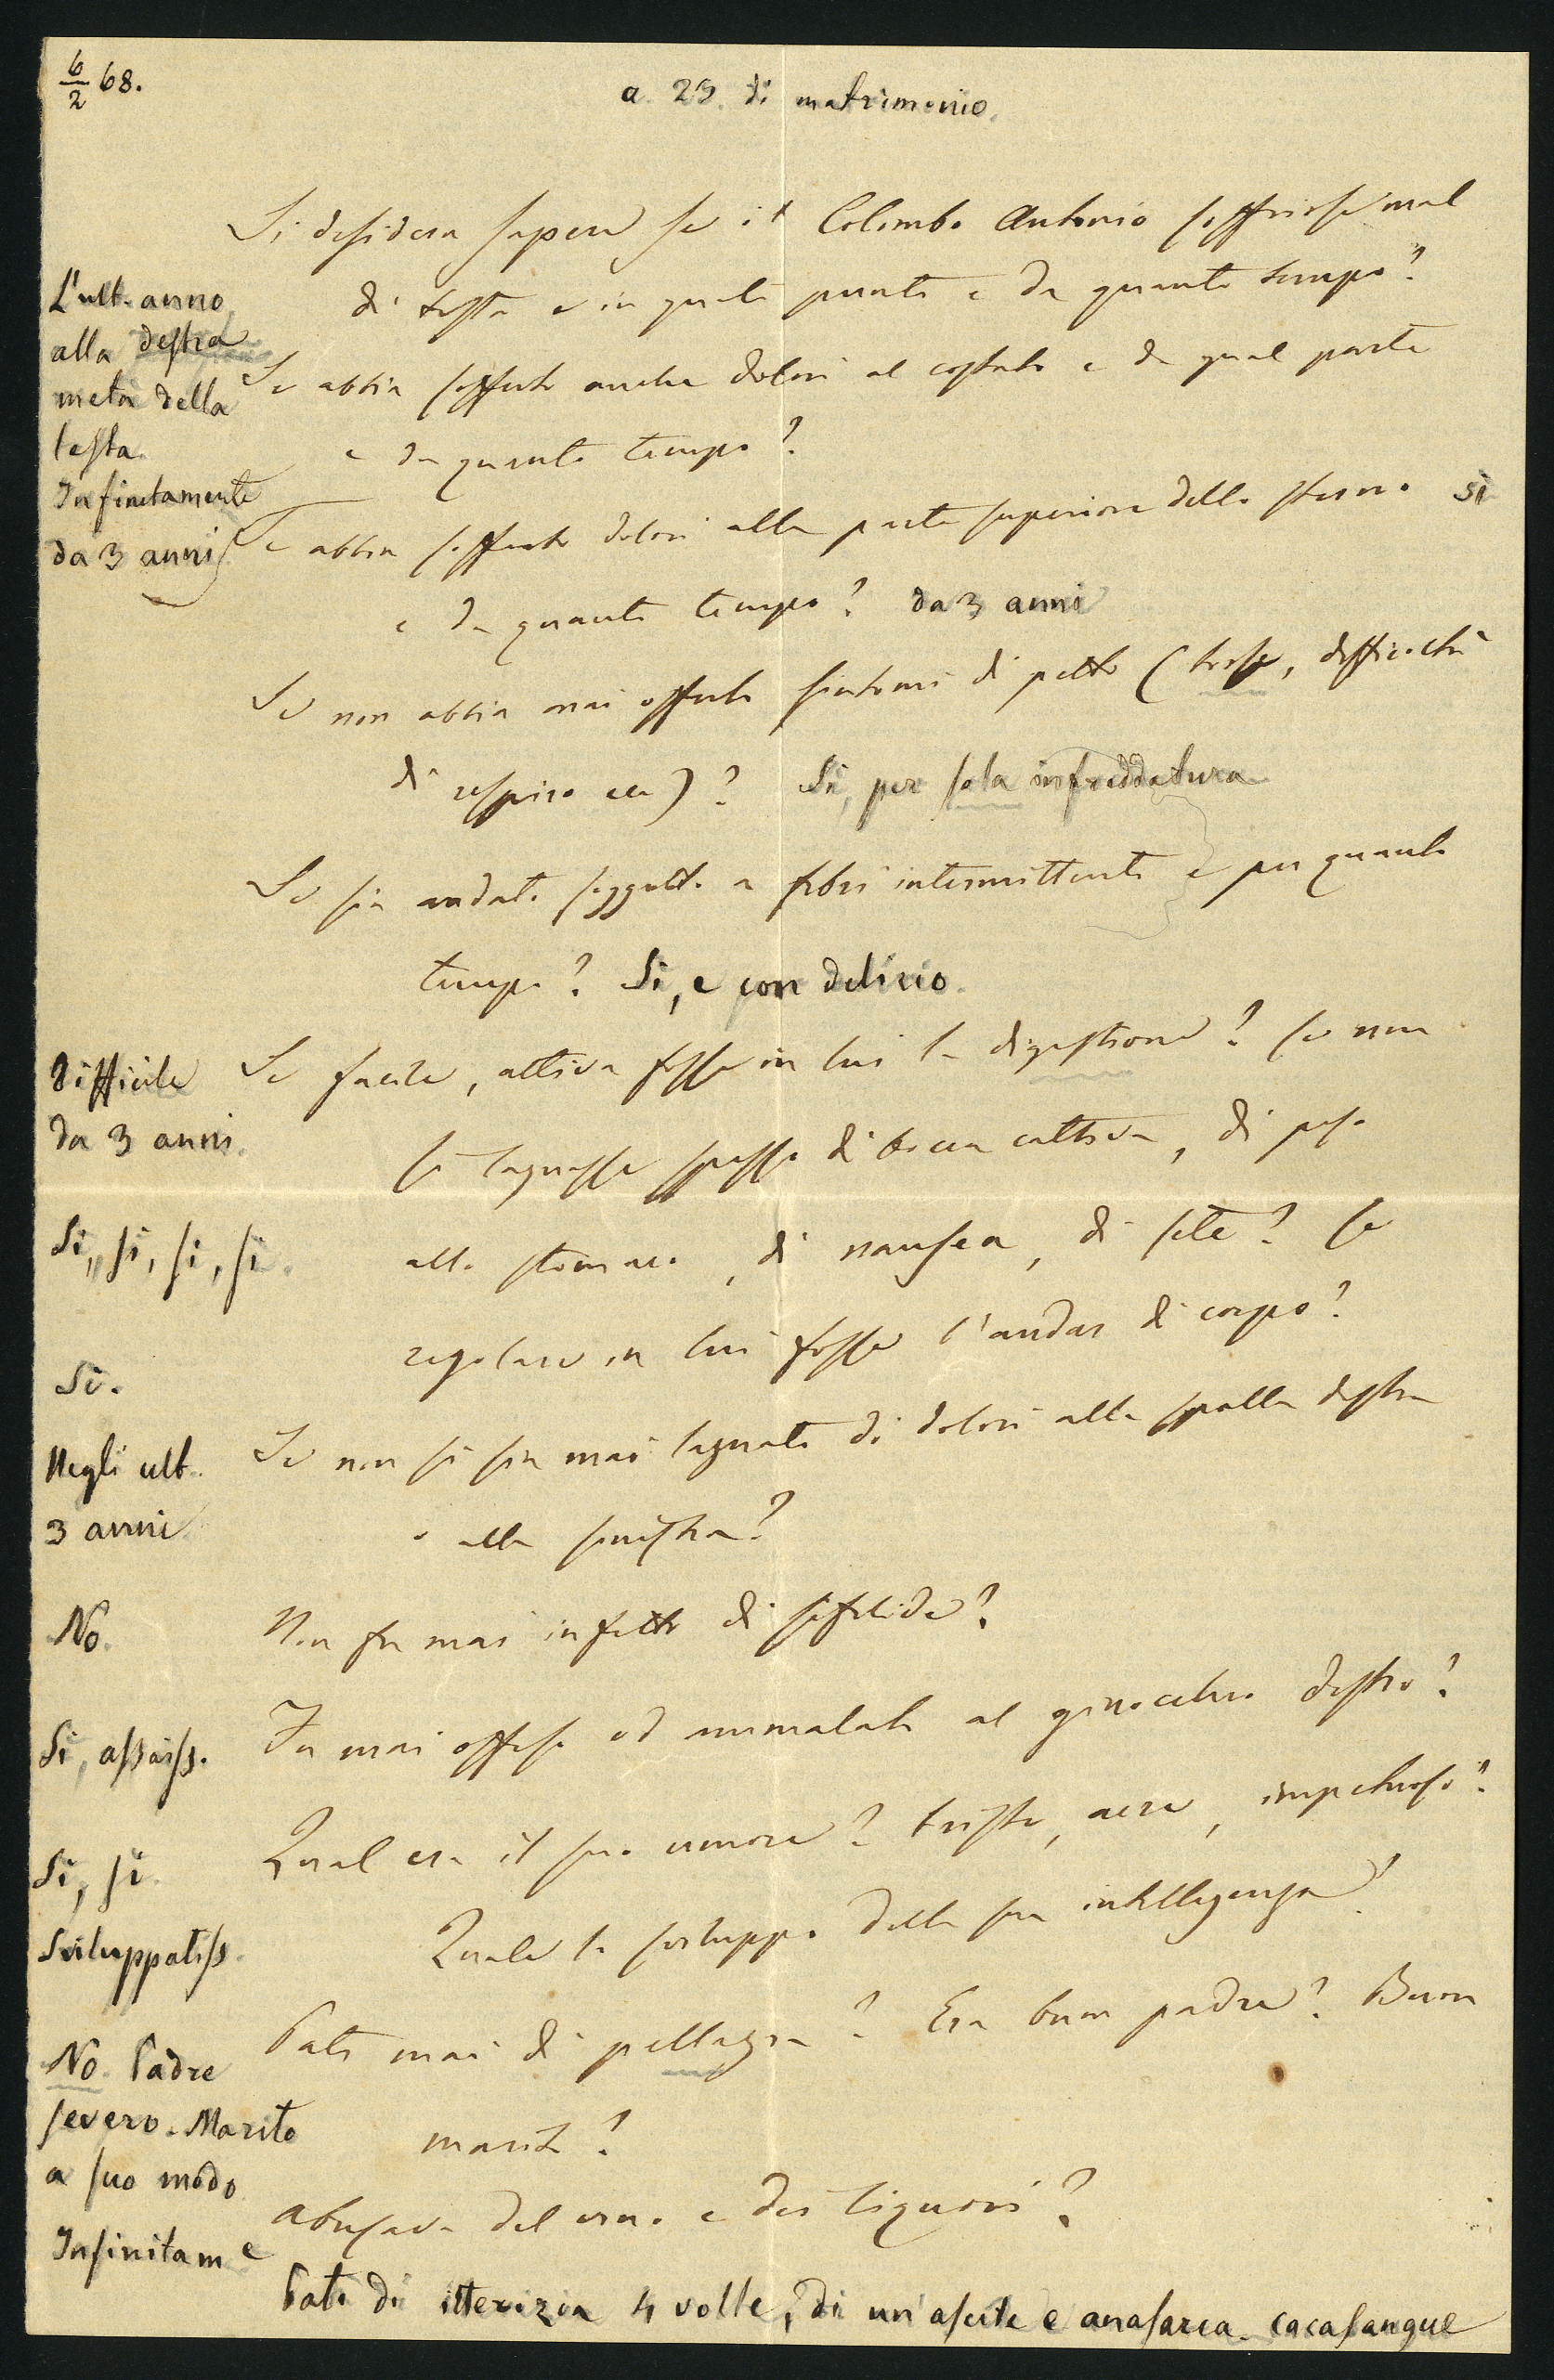 6/2 68.
a. 29. di matrimonio.
Si desidera sapere se il Colombo Antonio soffrisse mal
di testa e in quali punti e da quanto tempo?
L'ult. anno
alla destra
metà della
testa.
Se abbia sofferto anche dolori al costato e da qual parte
e da quanto tempo?
Infinitamente
da 3 anni
Se abbia sofferto dolori alla parte superiore dello sterno si
e da quanto tempo? da 3 anni
Se non abbia mai offerto sintomi di petto (tosse, difficoltà
di respiro ecc)? Si, per sola infreddatura
Se sia andato soggetto a febbri intermittenti e per quanto
tempo? Si, e con delirio.
Difficile
da 3 anni.
Se facile, attiva fosse in lui la digestione? se non
si lagnasse spesso di bocca cattiva, di peso
Si, si, si, si.
allo stomaco, di nausea, di sete? se
regolare in lui fosse l'andar di corpo?
Si.
Negli ult.
3 anni
Se non si sia mai lagnato di dolori alla spalla destra
o alla sinistra?
No.
Non fu mai infetto di sifilide?
Si, assaiss.
Fu mai offeso od ammalato al ginocchio destro?
Si, si.
Qual era il suo umore? triste, acre, impetuoso?
Sviluppatiss.
Quale lo sviluppo della sua intelligenza?
No. Padre
severo. Marito
a suo modo
Patì mai di pellagra? Era buon padre? Buon
marito?
Infinitame
Abusava del vino e dei liquori?
Patì di itterizia 4 volte, di un'ascite e anasarca. cacasangue